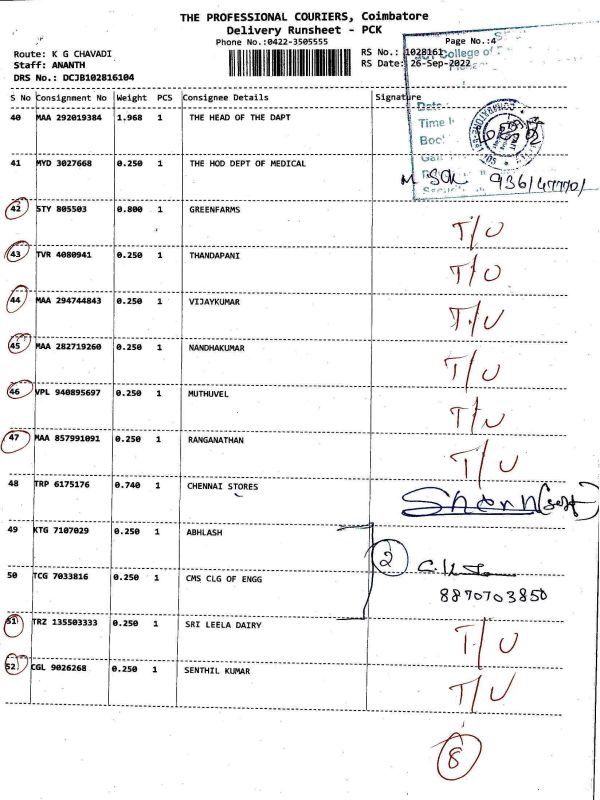 THE PROFESSIONAL COURIERS, Coimbatore
Delivery Runsheet - PCK
Phone No.:0422-3505555
Page No.:4
Route: K G CHAVADI
RS No.: 1028161
College of
Staff: ANANTH
RS Date: 26-Sep-2022
DRS No.: DCJB102816104
S No Consignment No Weight PCS Consignee Details Signature
Date:
40 MAA 292019384 1.968 1 THE HEAD OF THE DAPT
Time
41 MYD 3027668 0.250 1 THE HOD DEPT OF MEDICAL
42 STY 805503 0.800 1 GREENFARMS
T/U
43 TVR 4080941 0.250 1 THANDAPANI
T/U
44 MAA 294744843 0.250 1 VIJAYKUMAR
T/U
45 MAA 282719260 0.250 1 NANDHAKUMAR
T/U
46 VPL 940895697 0.250 1 MUTHUVEL
T/U
47 MAA 857991091 0.250 1 RANGANATHAN
T/U
48 TRP 6175176 0.740 1 CHENNAI STORES
49 KTG 7107029 0.250 1 ABHLASH
2
50 TCG 7033816 0.250 1 CMS CLG OF ENGG
8870703850
51 TRZ 135503333 0.250 1 SRI LEELA DAIRY
T/U
52 CGL 9026268 0.250 1 SENTHIL KUMAR
T/U
8